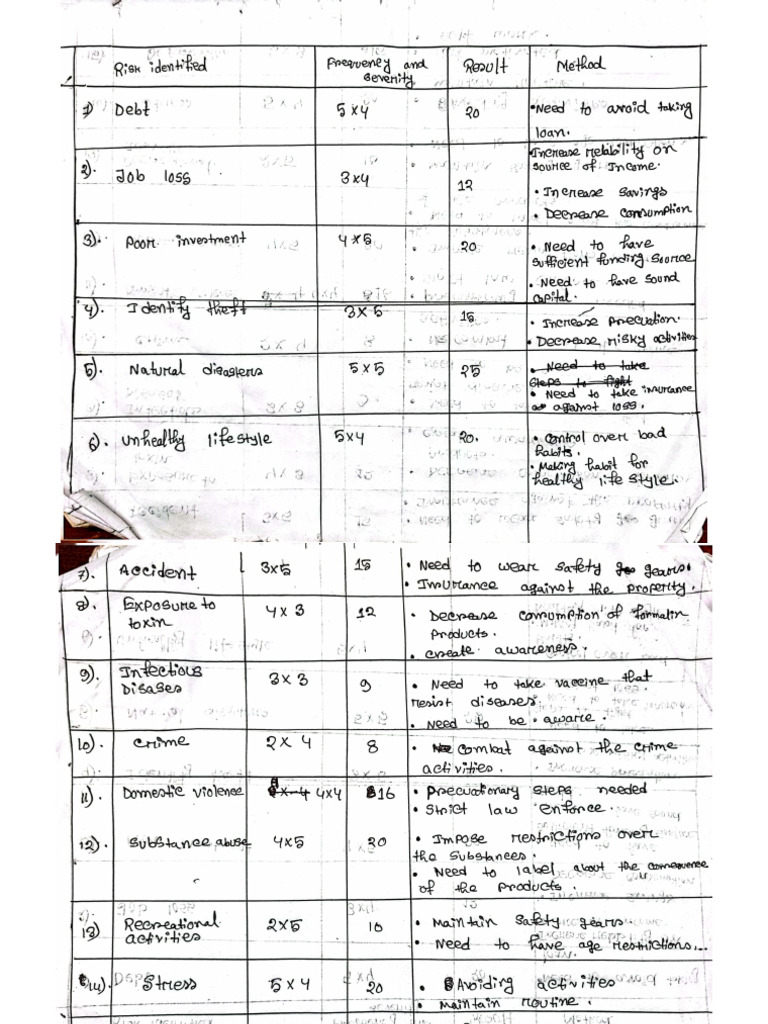 Risk identified Frequency and severity Result Method
1) Debt 5x4 20 • Need to avoid taking
loan.
2). Job loss 3x4 12 • Increase reliability on
source of Income.
• Increase savings
• Decrease consumption
3). Poor investment 4x5 20 • Need to have
sufficient funding source
• Need to have sound
capital.
4). Identify theft 3x5 15 • Increase precuation.
• Decrease risky activities
5). Natural disasters 5x5 25 • Need to take
steps to fight
• Need to take insurance
against loss.
6). Unhealthy lifestyle 5x4 20. • Control over bad
habits.
• Making habit for
healthy life style.
7). Accident 3x5 15 • Need to wear safety gears.
• Insurance against the property.
8). Exposure to
toxin 4x3 12 • Decrease consumption of formalin
products.
• create awareness.
9). Infectious
Disases 3x3 9 • Need to take vaccine that
resist diseases.
• Need to be aware.
10). Crime 2x4 8 • Combat against the crime
activities.
11). Domestic violence 4x4 16 • Precuationary steps needed
• Strict law enforce.
12). Substance abuse 4x5 20 • Impose restrictions over
the substances.
• Need to label about the consequence
of the products.
13) Recreational
activities 2x5 10 • Maintain safety gears
• Need to have age restrictions...
14). Stress 5x4 20 • Avoiding activities
• Maintain routine.